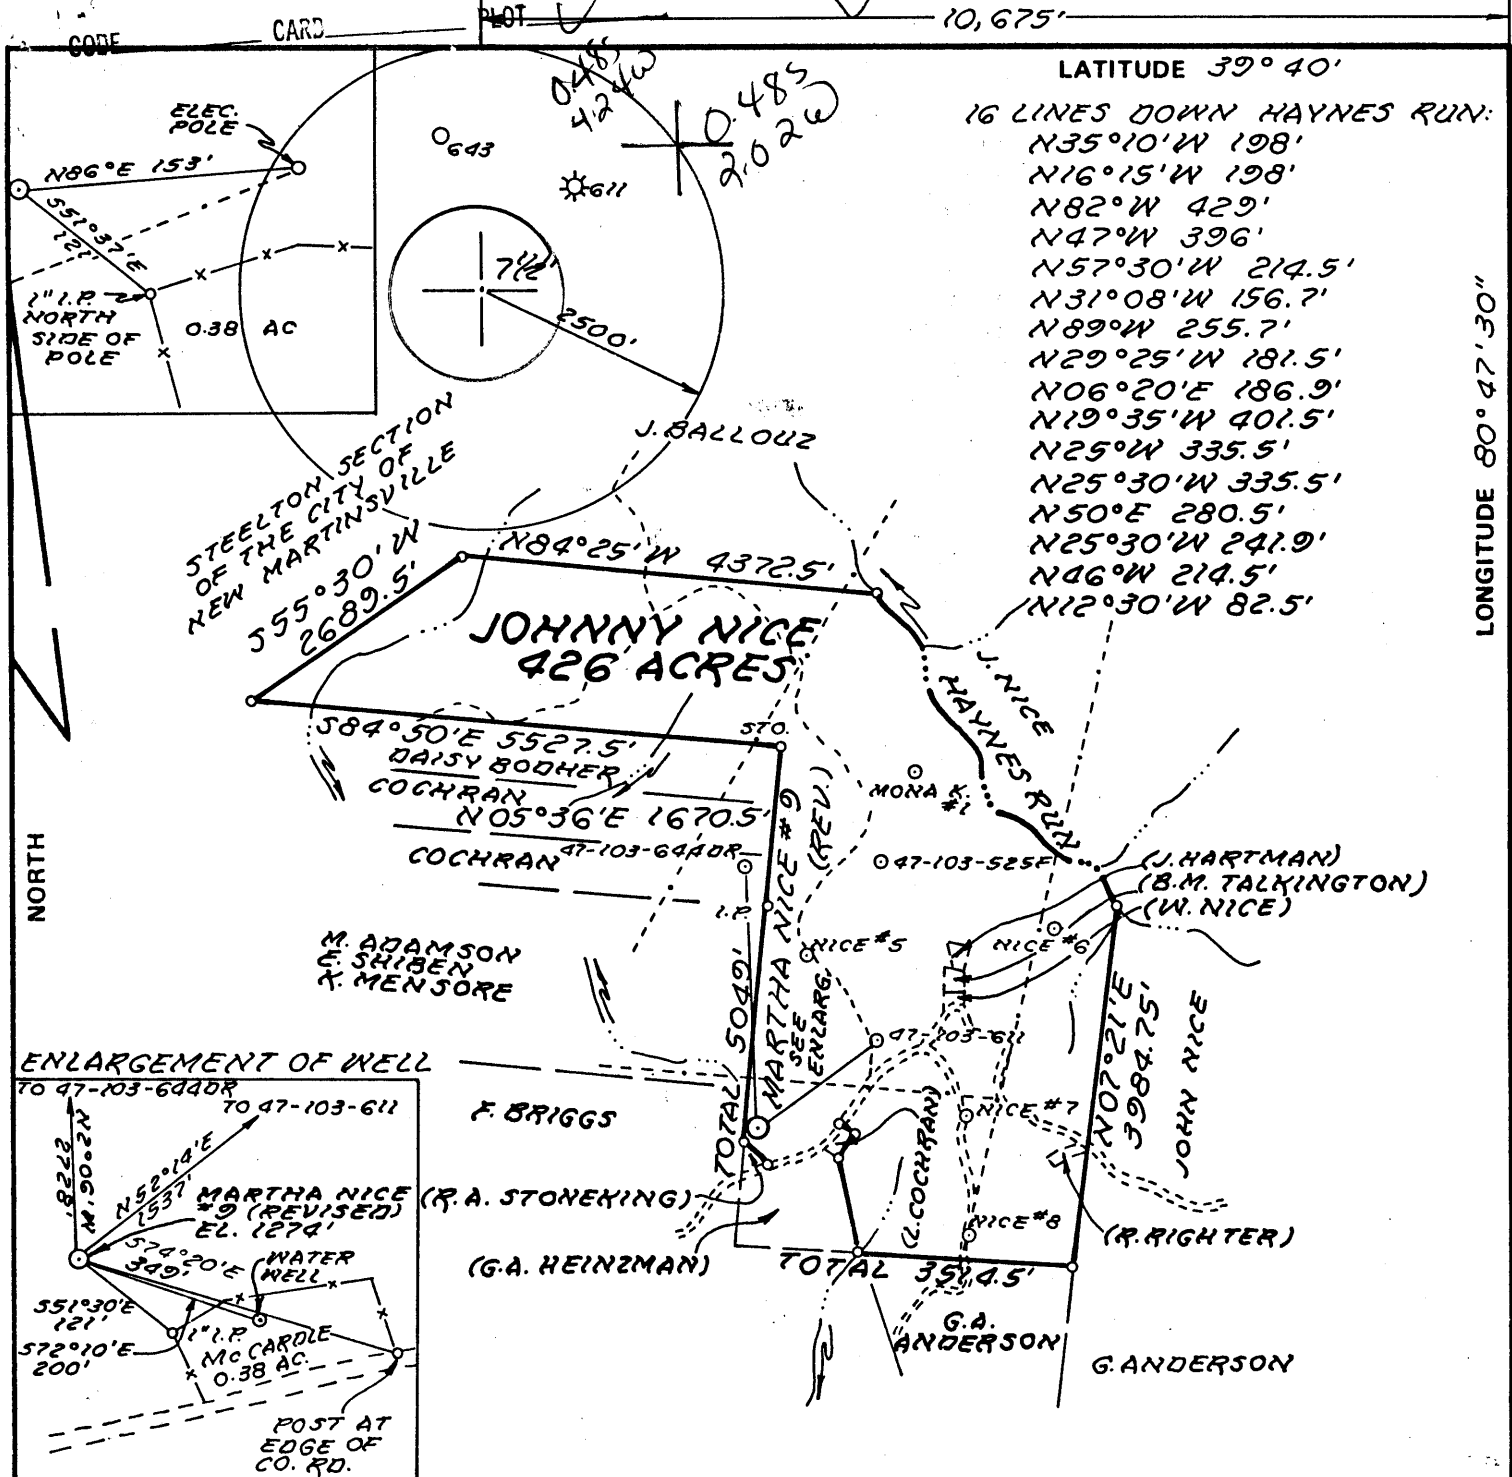 CODE CARD PLOT 10,675'
LATITUDE 39° 40'
16 LINES DOWN HAYNES RUN:
N35°10'W 198'
N16°15'W 198'
N82°W 429'
N47°W 396'
N57°30'W 214.5'
N31°08'W 156.7'
N89°W 255.7'
N29°25'W 181.5'
N06°20'E 186.9'
N19°35'W 401.5'
N25°W 335.5'
N25°30'W 335.5'
N50°E 280.5'
N25°30'W 241.9'
N46°W 214.5'
N12°30'W 82.5'
LONGITUDE 80° 47' 30"
0.48S
4.24W
0.48S
2.02W
ELEC.
POLE
N86°E 153'
S51°37'E
121'
1" I.P.
NORTH
SIDE OF
POLE
0.38 AC
643
611
7 1/2'
2500'
J. BALLOUZ
STEELTON SECTION
OF THE CITY OF
NEW MARTINSVILLE
S55°30'W
2689.5'
N84°25'W 4372.5'
JOHNNY NICE
426 ACRES
S84°50'E 5527.5'
STO.
DAISY BODHER
COCHRAN
N05°36'E 1670.5'
COCHRAN
47-103-644DR
I.P.
J. NICE
HAYNES RUN
MONA K.
#1
47-103-525F
(J. HARTMAN)
(B.M. TALKINGTON)
(W. NICE)
NORTH
M. ADAMSON
E. SHIBEN
K. MENSORE
MARTHA NICE #9
(REV.)
SEE
ENLARG.
TOTAL 5049'
NICE #5
NICE #6
47-103-611
N07°21'E
3984.75'
JOHN NICE
F. BRIGGS
NICE #7
(L. COCHRAN)
(R.A. STONEKING)
(G.A. HEINZMAN)
NICE #8
(R. RIGHTER)
TOTAL 3514.5'
G.A.
ANDERSON
G. ANDERSON
ENLARGEMENT OF WELL
TO 47-103-644DR
TO 47-103-611
N2°06'W
2728'
N52°14'E
1537'
MARTHA NICE
#9 (REVISED)
EL. 1274'
S74°20'E
349'
WATER
WELL
S51°30'E
121'
S72°10'E
200'
1" I.P.
MC CARDLE
0.38 AC.
POST AT
EDGE OF
CO. RD.